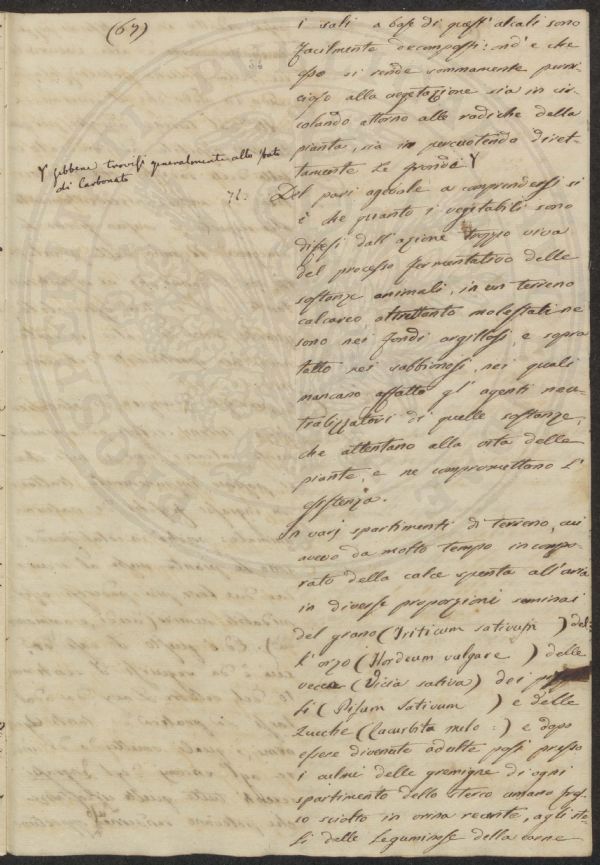 (67)
i sali a base di quest'alcali sono
facilmente decomposti: nè è che
esso si rende sommamente perni-
cioso alla vegetazione sia in cir-
colando attorno alle radiche della
pianta, sia in percuotendo diret-
tamente le fronda Y
Y sebbene trovisi generalmente allo stato
di Carbonato
71. Del pari agevole a comprendersi si
è che quanto i vegitabili sono
difesi dall'azione troppo viva
del processo fermentativo delle
sostanze animali, in un terreno
calcareo altrettanto molestati ne
sono nei fondi argillosi, e sopra
tutto nei sabbiniosi, nei quali
mancano affatto gl'agenti neu-
tralizzatori di quelle sostanze,
che attentano alla vita delle
piante, e ne compromettono l'
esistenza.
In varj spartimenti di terreno, cui
avevo da molto tempo incorpo-
rato della calce spenta all'aria
in diverse proporzioni seminai
del grano (Triticum sativum ) del-
l'orzo (Hordeum vulgare ) delle
vecce (Vicia sativa) dei
li (Pisum Sativum ) e delle
Zucche (Cucurbita melo :) e dopo
essere divenute adulte posi presso
i culmi delle gremigne di ogni
spartimento dello sterco umano fres-
so sciolto in orina recente, agli ste-
li delle Leguminose della carne